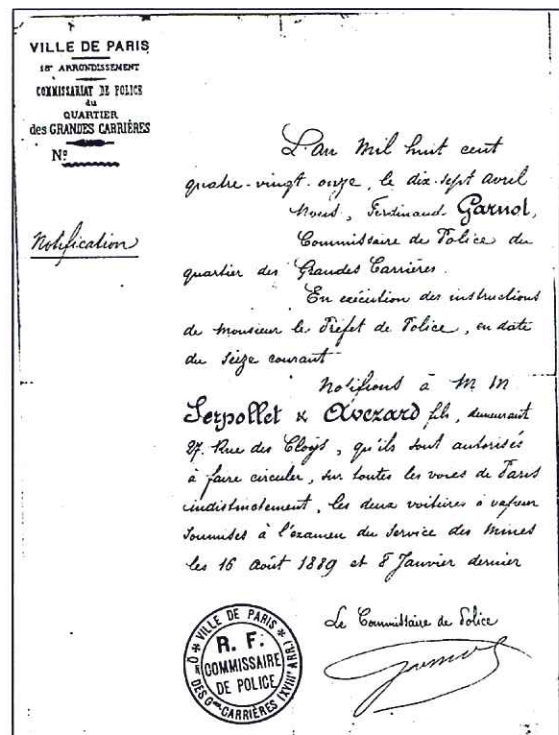 VILLE DE PARIS
18e ARRONDISSEMENT
COMMISSARIAT DE POLICE
du
QUARTIER
des GRANDES CARRIÈRES
No
Notification
L'an mil huit cent
quatre-vingt-onze, le dix-sept avril
Nous, Ferdinand Garnot,
Commissaire de Police du
quartier des Grandes Carrières.
En exécution des instructions
de Monsieur le Préfet de Police, en date
du seize courant
Notifions à M M
Serpollet & Avezard fils, demeurant
27. Rue des Cloÿs, qu'ils sont autorisés
à faire circuler, sur toutes les voies de Paris
indistinctement, les deux voitures à vapeur
soumises à l'examen du Service des Mines
les 16 août 1889 et 8 Janvier dernier
Le Commissaire de Police
* VILLE DE PARIS *
R. F.
COMMISSAIRE
DE POLICE
Qer DES Gdes CARRIÈRES (XVIIIe ARRt)